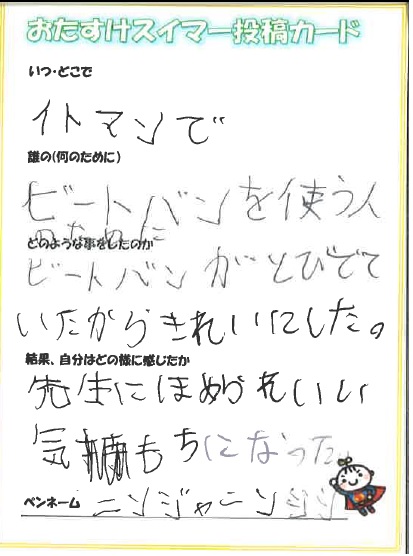 おたすけスイマー投稿カード
いつ・どこで
イトマンで
誰の(何のために)
ビートバンを使う人
のために
どのような事をしたのか
ビートバンがとびでて
いたからきれいにした。
結果、自分はどの様に感じたか
先生にほめられいい
気もちになった。
ペンネーム ニンジャニンジン